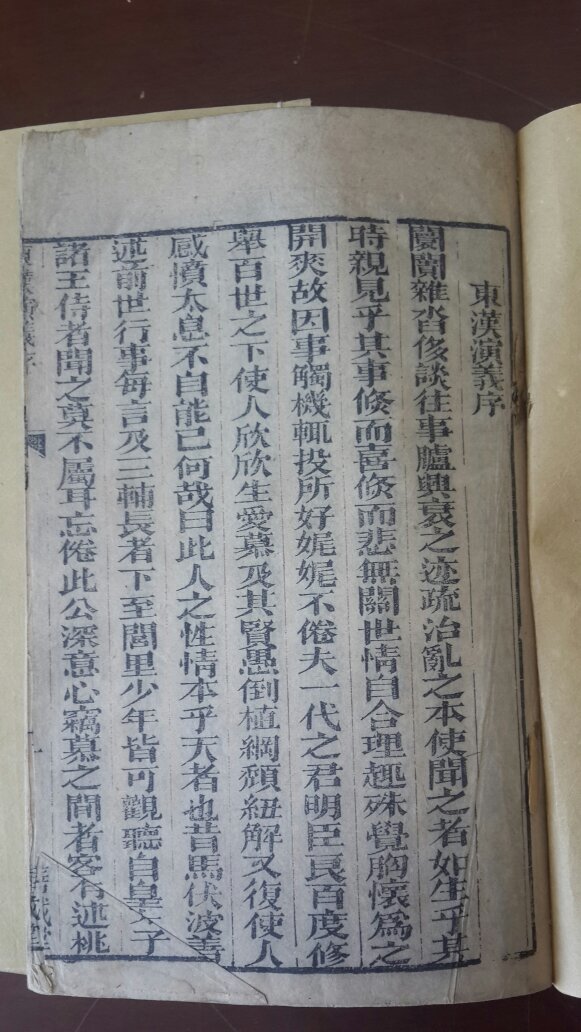 東漢演義序
閱閱雜沓侈談往事臚興衰之迹疏治亂之本使聞之者如生乎其
時親見乎其事倐而喜倐而悲無關世情自合理趣殊覺胸懷爲之
開爽故因事觸機輒投所好娓娓不倦夫一代之君明臣良百度修
舉百世之下使人欣欣生愛慕及其賢愚倒植綱頹紐解又復使人
感憤太息不自能已何哉曰此人之性情本乎天者也昔馬伏波善
述前世行事每言及三輔長者下至閭里少年皆可觀聽自皇太子
諸王侍者聞之莫不屬耳忘倦此公深意心竊慕之間者客有述桃
東漢演義序